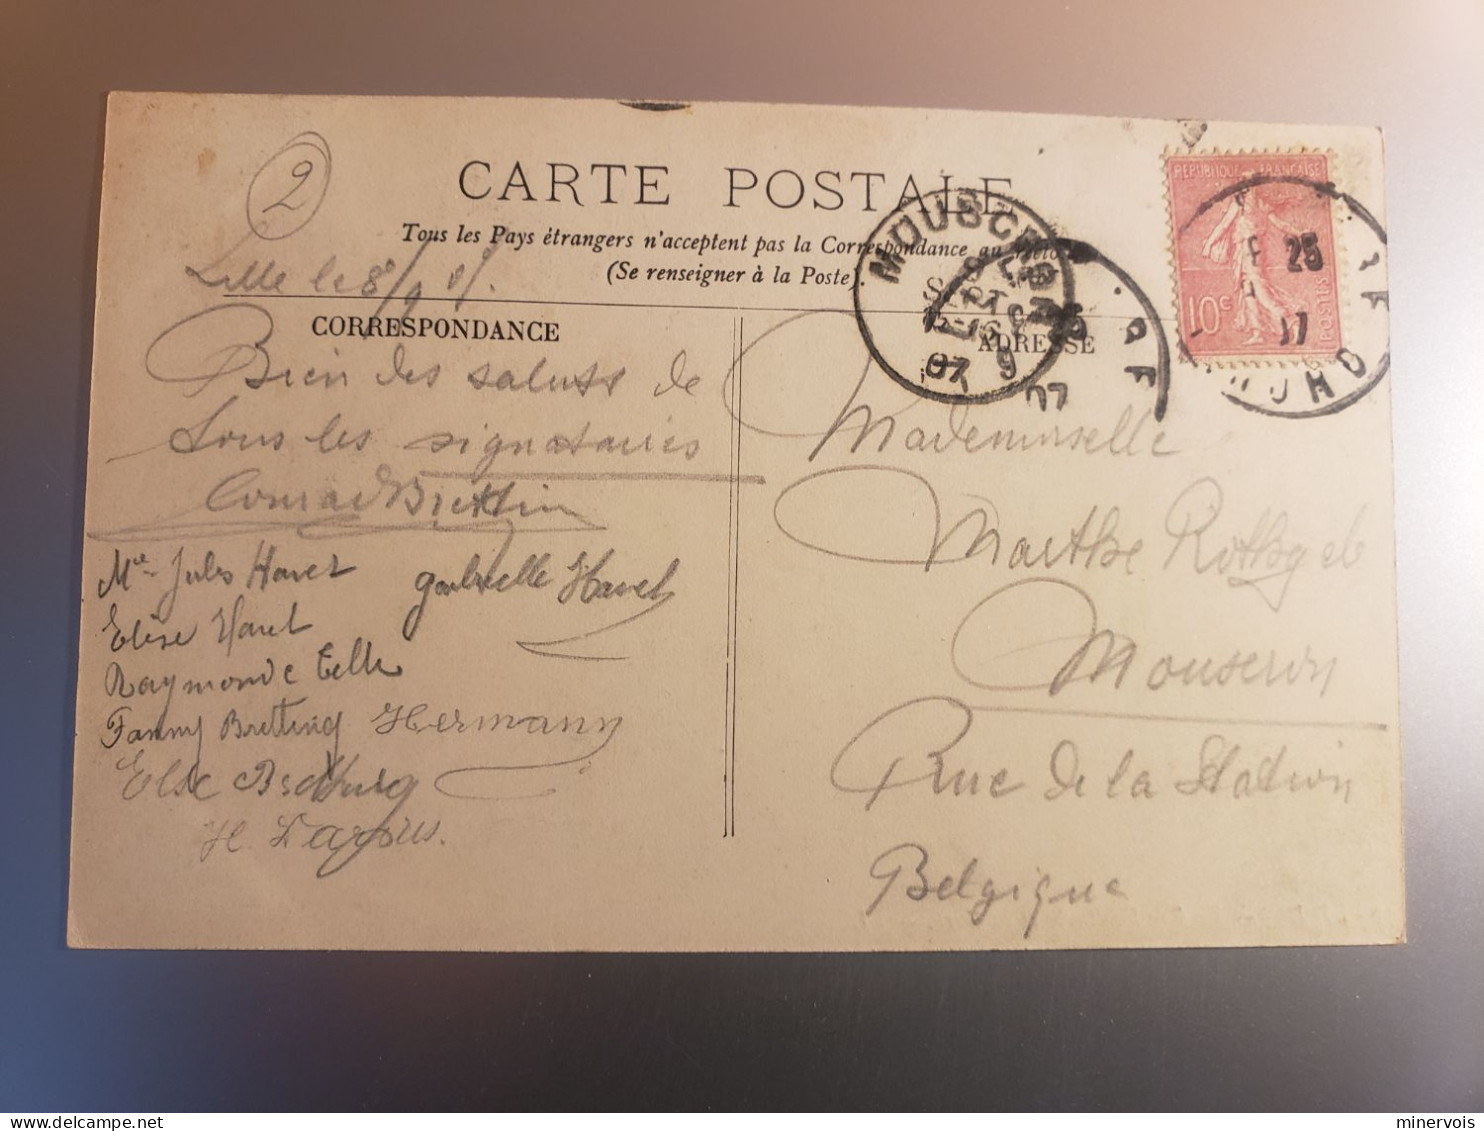 2
CARTE POSTALE
Tous les Pays étrangers n'acceptent pas la Correspondance au
(Se renseigner à la Poste).
Lille le 8/9 07.
CORRESPONDANCE
ADRESSE
MOUSCRON
SEPT
07
9
07
RÉPUBLIQUE FRANÇAISE
10c
POSTES
25
Bien des saluts de
tous les signataires
Mlle Jules Havet
Gabrielle Havet
Elise Havet
Raymonde
Fanny Bretting Hermann
Else
Mademoiselle
Marthe
Mouscron
Rue de la Station
Belgique
minervois